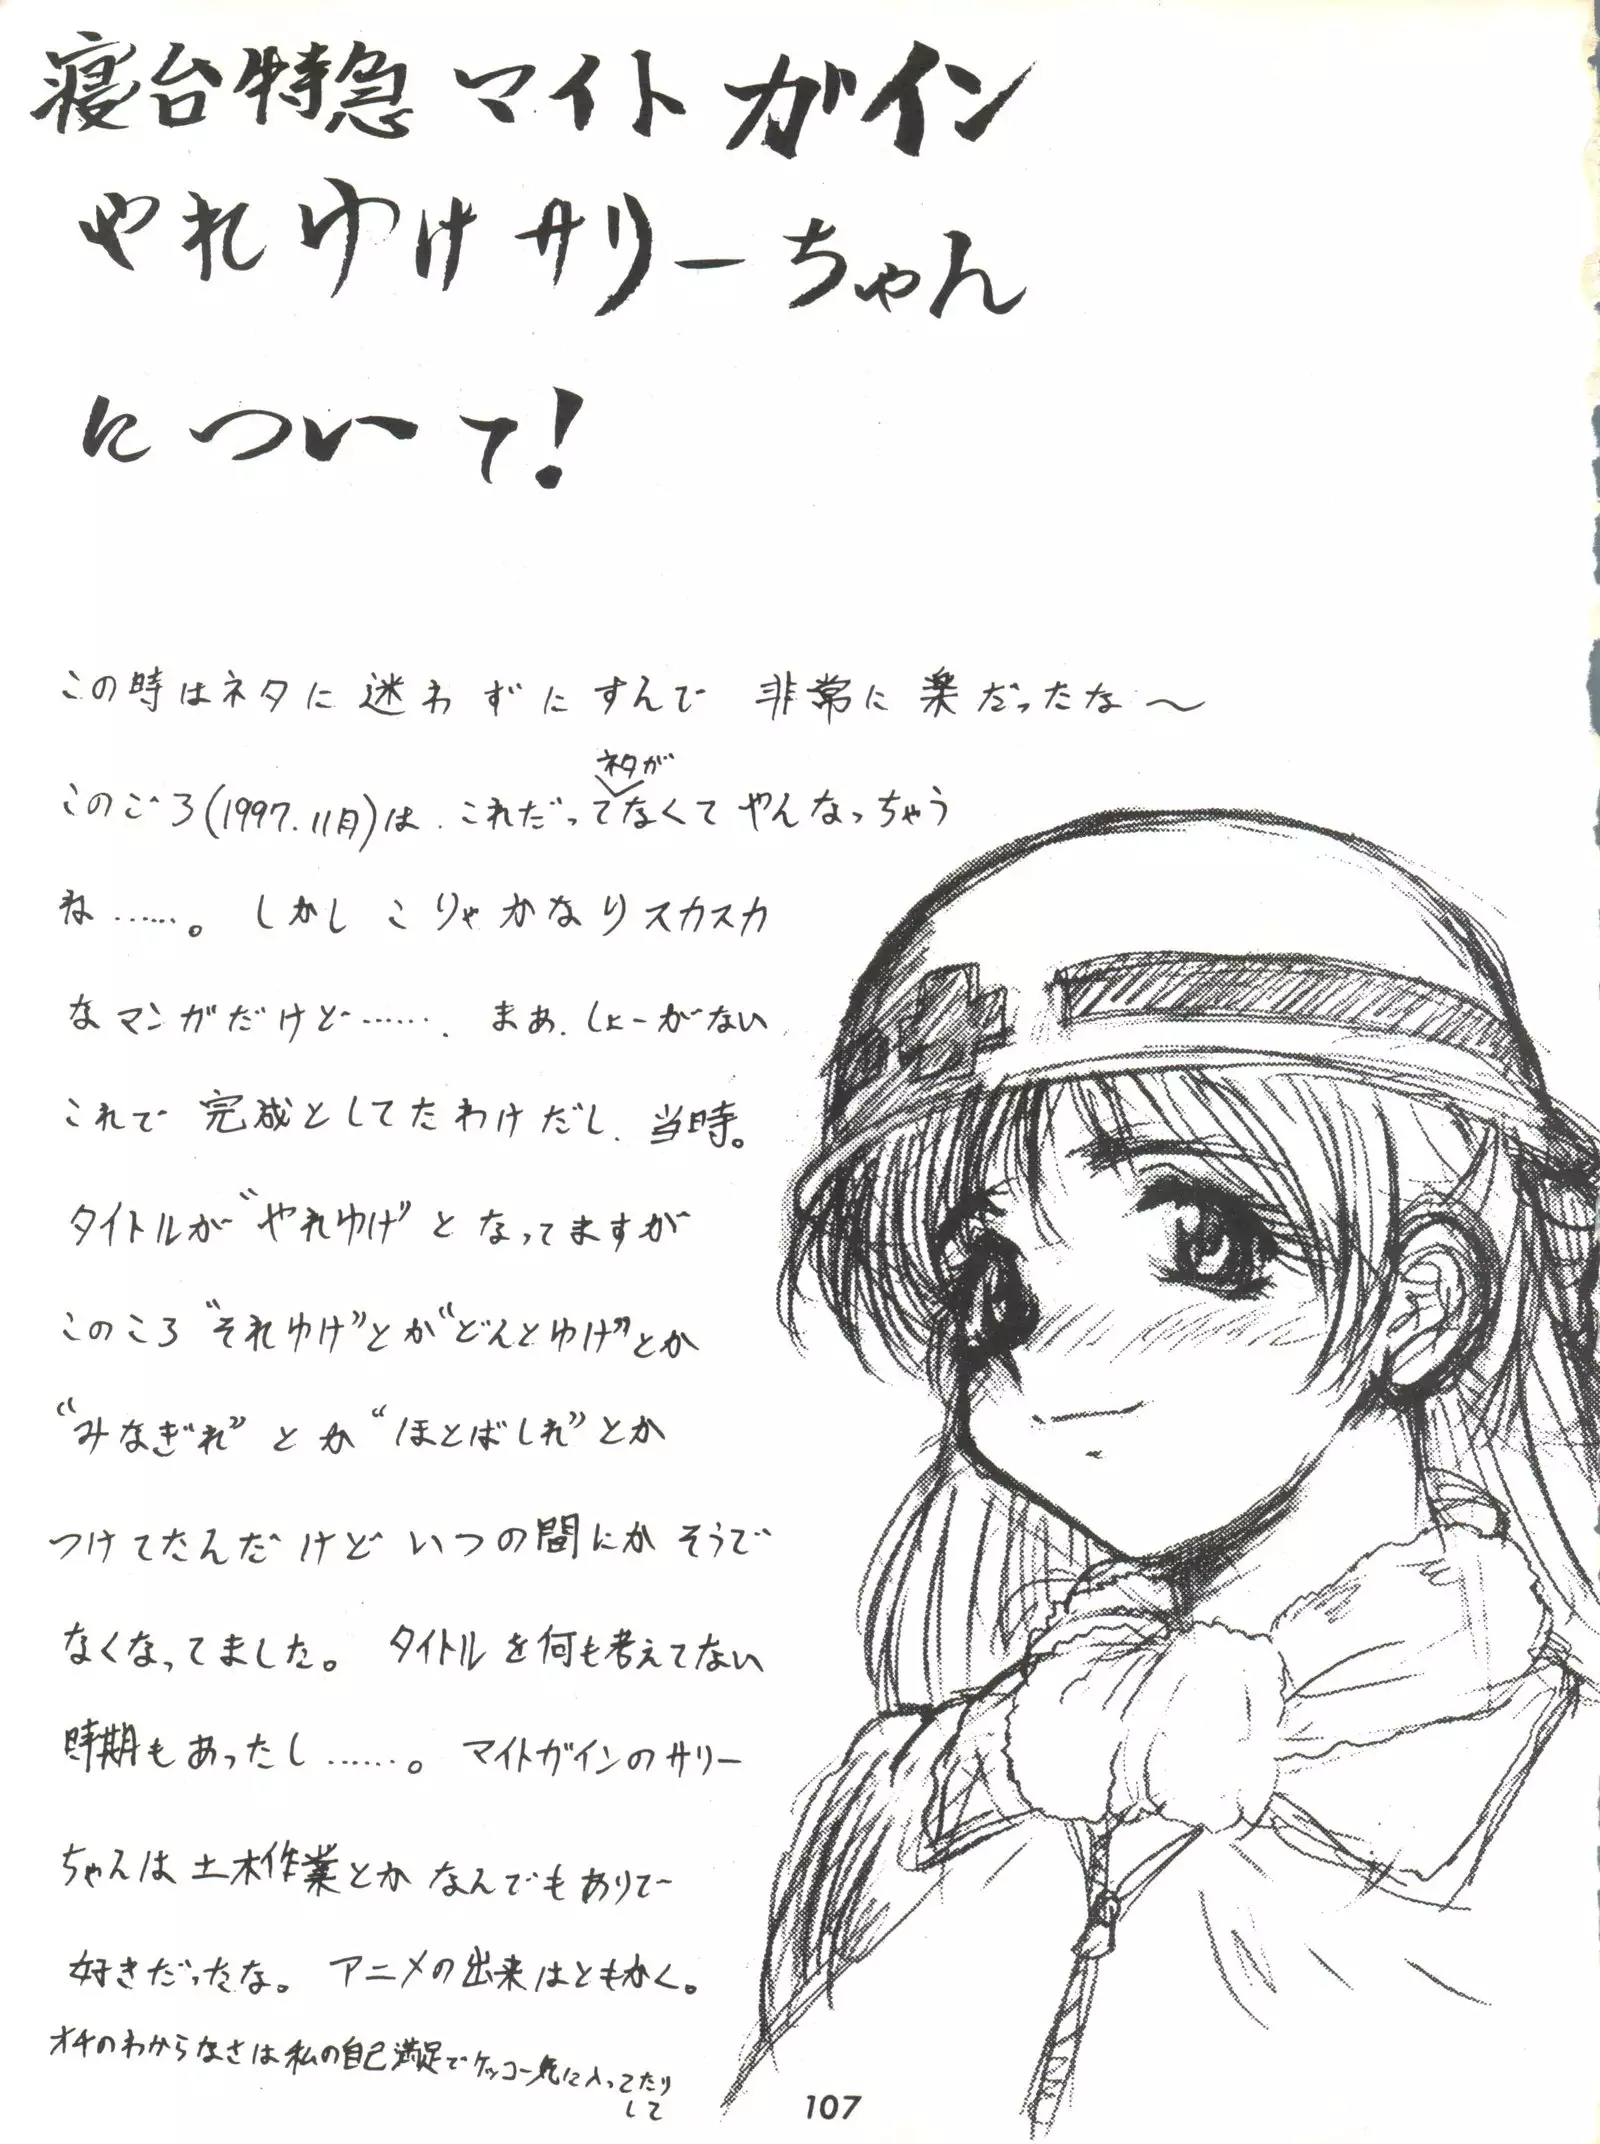 寝台特急 マイトガイン
やれゆけサリーちゃん
について!
この時はネタに迷わずにすんで 非常に楽だったな〜
ネタが
このごろ(1997.11月)は、これだってなくてやんなっちゃう
ね……。 しかし こりゃかなりスカスカ
なマンガだけど……、 まあ、しょーがない
これで完成としてたわけだし、当時。
タイトルが“やれゆけ”となってますが
このころ“それゆけ”とか“どんとゆけ”とか
“みなぎれ”とか“ほとばしれ”とか
つけてたんだけど いつの間にか そうで
なくなってました。 タイトルを何も考えてない
時期もあったし……。 マイトガインのサリー
ちゃんは土木作業とか なんでもありで
好きだったな。 アニメの出来はともかく。
オチのわからなさは私の自己満足でケッコー気に入ってたり
して
107